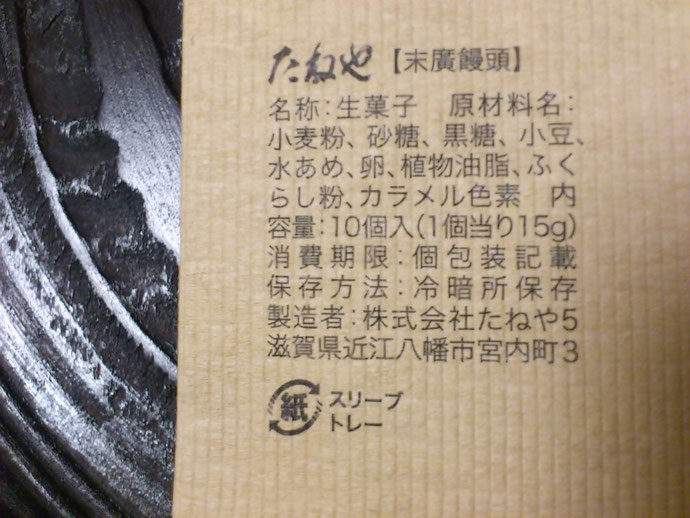 たねや【末廣饅頭】
名称：生菓子　原材料名：
小麦粉、砂糖、黒糖、小豆、
水あめ、卵、植物油脂、ふく
らし粉、カラメル色素　内
容量：10個入（1個当り15g）
消費期限：個包装記載
保存方法：冷暗所保存
製造者：株式会社たねや5
滋賀県近江八幡市宮内町3
紙 スリーブ
トレー